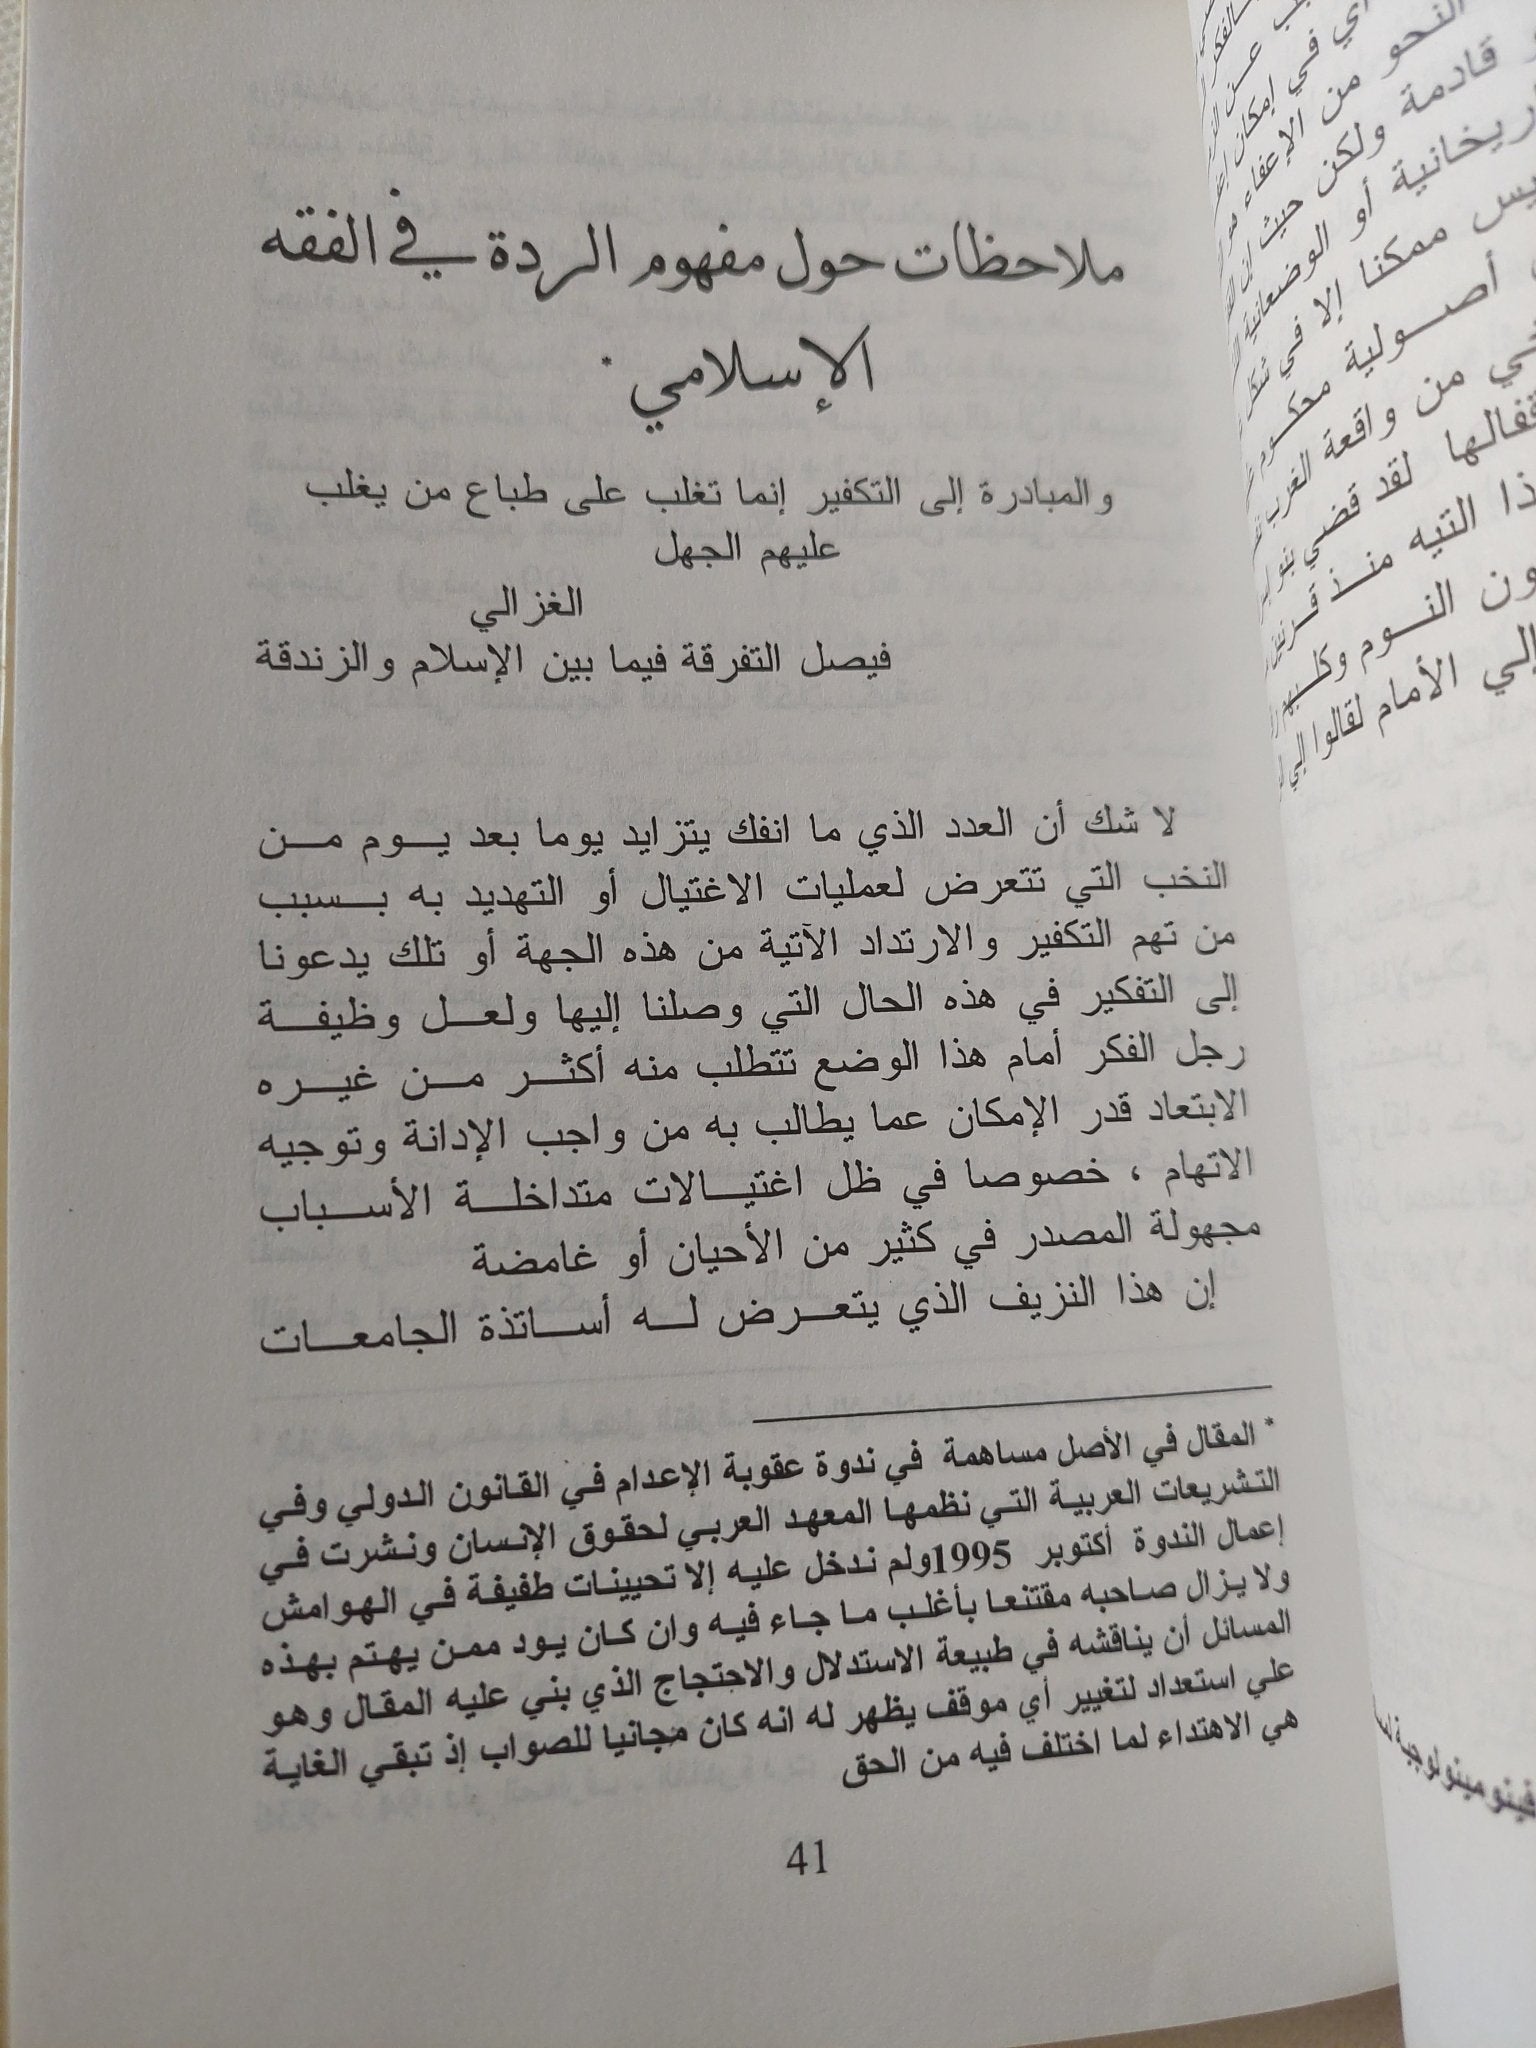 ملاحظات حول مفهوم الردة في الفقه
الإسلامي *
والمبادرة إلى التكفير إنما تغلب على طباع من يغلب
عليهم الجهل
الغزالي
فيصل التفرقة فيما بين الإسلام والزندقة
لا شك أن العدد الذي ما انفك يتزايد يوما بعد يوم من
النخب التي تتعرض لعمليات الاغتيال أو التهديد به بسبب
من تهم التكفير والارتداد الآتية من هذه الجهة أو تلك يدعونا
إلى التفكير في هذه الحال التي وصلنا إليها ولعل وظيفة
رجل الفكر أمام هذا الوضع تتطلب منه أكثر من غيره
الابتعاد قدر الإمكان عما يطالب به من واجب الإدانة وتوجيه
الاتهام ، خصوصا في ظل اغتيالات متداخلة الأسباب
مجهولة المصدر في كثير من الأحيان أو غامضة
إن هذا النزيف الذي يتعرض له أساتذة الجامعات
* المقال في الأصل مساهمة في ندوة عقوبة الإعدام في القانون الدولي وفي
التشريعات العربية التي نظمها المعهد العربي لحقوق الإنسان ونشرت في
إعمال الندوة أكتوبر 1995ولم ندخل عليه إلا تحيينات طفيفة في الهوامش
ولا يزال صاحبه مقتنعا بأغلب ما جاء فيه وان كان يود ممن يهتم بهذه
المسائل أن يناقشه في طبيعة الاستدلال والاحتجاج الذي بني عليه المقال وهو
علي استعداد لتغيير أي موقف يظهر له انه كان مجانيا للصواب إذ تبقي الغاية
هي الاهتداء لما اختلف فيه من الحق
41
أي في إمكان
النحو من الإعفاء
قادمة ولكن حيث إن
أو الوضعانية
يس ممكنا إلا في شكل
أصولية محكوم
من واقعة الغرب
لقد قضي
ذا التيه منذ قرنين
ون النوم وكلبهم
إلي الأمام لقالوا إلي